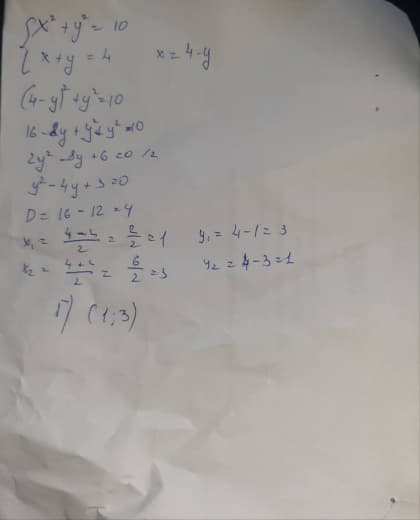 { x² + y² = 10
x + y = 4 x = 4 - y
(4 - y)² + y² = 10
16 - 8y + y² + y² = 10
2y² - 8y + 6 = 0 /2
y² - 4y + 3 = 0
D = 16 - 12 = 4
x₁ = (4 - 2)/2 = 2/2 = 1 y₁ = 4 - 1 = 3
x₂ = (4 + 2)/2 = 6/2 = 3 y₂ = 4 - 3 = 1
Г) (1; 3)